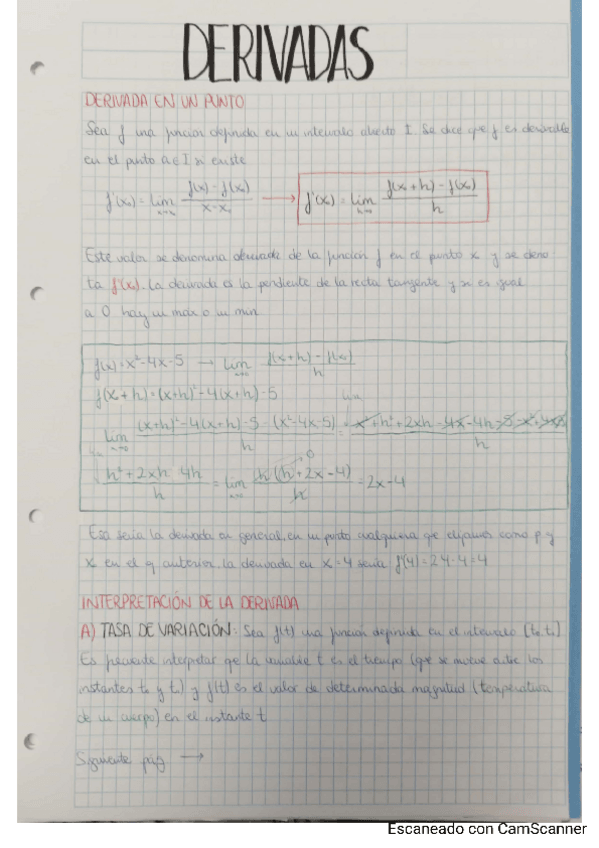 DERIVADAS
DERIVADA EN UN PUNTO
Sea f una función definida en un intervalo abierto I. Se dice que f es derivable
en el punto a∈I si existe
f'(x₀) = lim f(x) - f(x₀) / x - x₀ → f'(x₀) = lim h→0 f(x + h) - f(x₀) / h
Este valor se denomina derivada de la función f en el punto x y se deno
ta f'(x₀). La derivada es la pendiente de la recta tangente y si es igual
a 0 hay un máx o un mín
f(x) = x²-4x-5 → lim f(x+h) - f(x) / h
f(x + h) = (x+h)² - 4(x+h) - 5
lim (x+h)² - 4(x+h) - 5 - (x² - 4x - 5) / h = lim x² + h² + 2xh - 4x - 4h - 5 - x² + 4x + 5 / h
h² + 2xh - 4h / h = lim h (h + 2x - 4) / h = 2x - 4
Esa sería la derivada en general, en un punto cualquiera que elijamos como p y
x en el ej anterior. la derivada en x = 4 sería f'(4) = 2·4 - 4 = 4
INTERPRETACIÓN DE LA DERIVADA
A) TASA DE VARIACIÓN: Sea f(t) una función definida en el intervalo [t₀ t₁]
Es frecuente interpretar que la variable t es el tiempo (que se mueve entre los
instantes t₀ y t₁) y f(t) es el valor de determinada magnitud (temperatura
de un cuerpo) en el instante t
Siguiente pág →
Escaneado con CamScanner